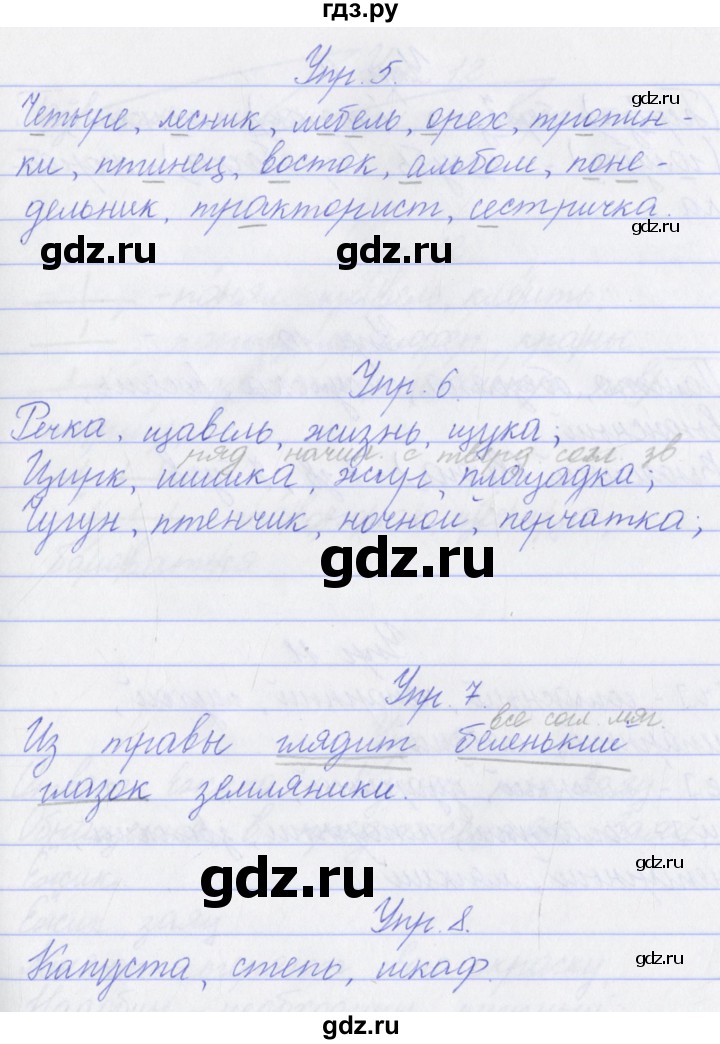 гдз.ру
Упр. 5.
gdz.ru
Четыре, лесник, мебель, орех, тропин-
ки, птинец, восток, альбом, поне-
gdz.ru
дельник, тракторист, сестричка.
gdz.ru gdz.ru gdz.ru
Упр. 6.
Речка, щавель, жизнь, щука;
ряд начин. с тверд согл. зв
gdz.ru
Цирк, шишка, жук, площадка;
Чугун, птенчик, ночной, перчатка;
gdz.ru
Упр. 7
все согл. мяг.
Из травы глядит беленький
глазок земляники.
gdz.ru gdz.ru
Упр. 8.
Капуста, степь, шкаф.
gdz.ru
gdz.ru